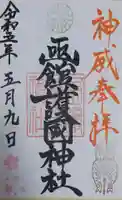 神威奉拝
函館護國神社
令和五年五月九日